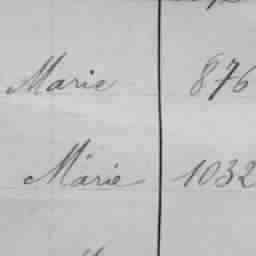 Marie 876
Marie 1032